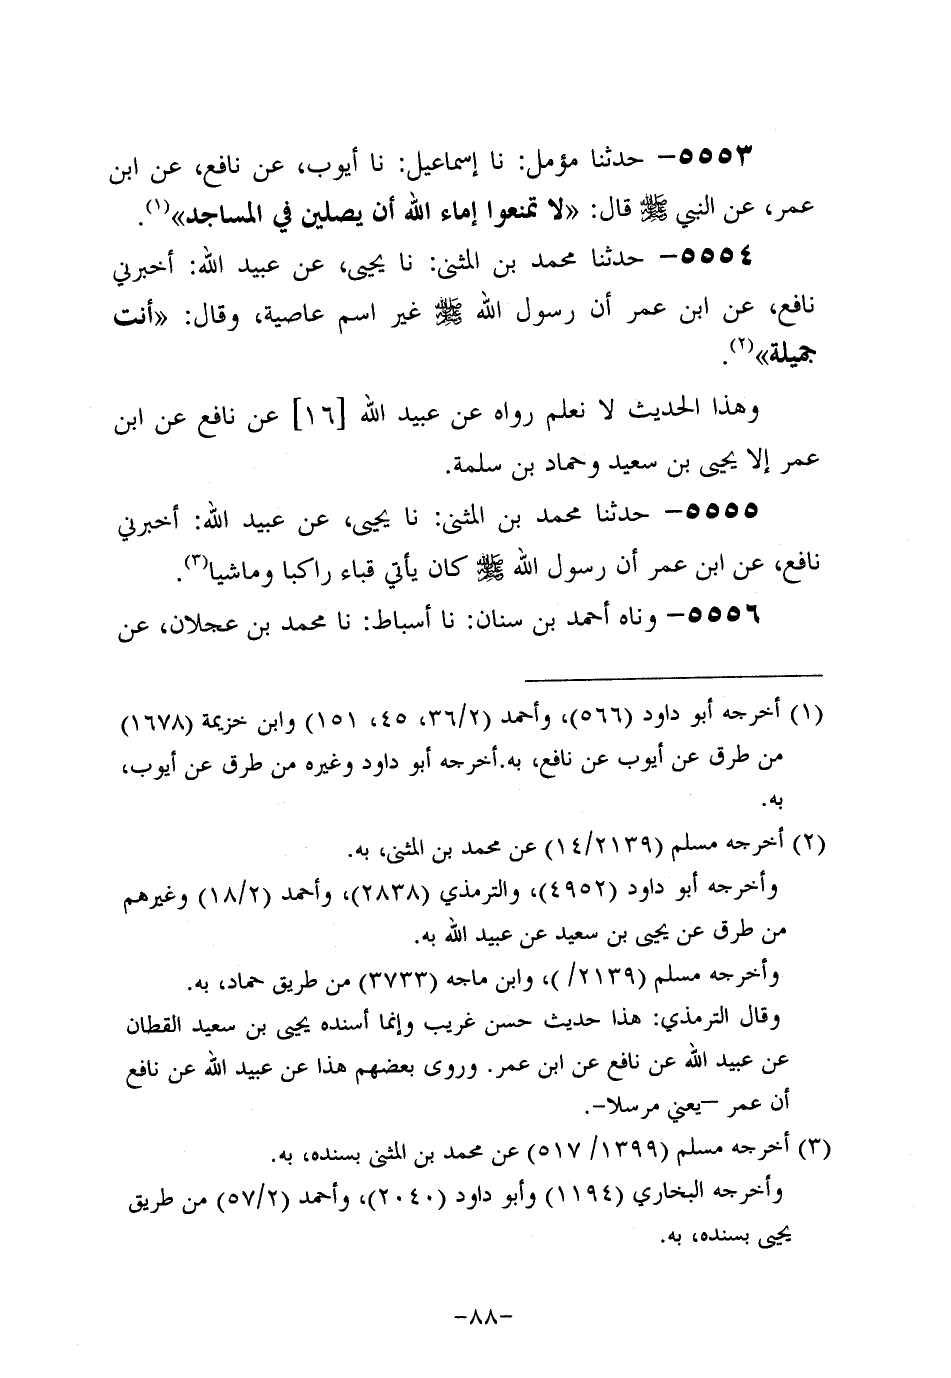 ٥٥٥٣- حدثنا مؤمل: نا إسماعيل: نا أيوب، عن نافع، عن ابن
عمر، عن النبي ﷺ قال: «لا تمنعوا إماء الله أن يصلين في المساجد»(١).
٥٥٥٤- حدثنا محمد بن المثنى: نا يحيى، عن عبيد الله: أخبرني
نافع، عن ابن عمر أن رسول الله ﷺ غير اسم عاصية، وقال: «أنت
جميلة»(٢).
وهذا الحديث لا نعلم رواه عن عبيد الله [١٦] عن نافع عن ابن
عمر إلا يحيى بن سعيد وحماد بن سلمة.
٥٥٥٥- حدثنا محمد بن المثنى: نا يحيى، عن عبيد الله: أخبرني
نافع، عن ابن عمر أن رسول الله ﷺ كان يأتي قباء راكبا وماشيا(٣).
٥٥٥٦- وناه أحمد بن سنان: نا أسباط: نا محمد بن عجلان، عن
(١) أخرجه أبو داود (٥٦٦)، وأحمد (٣٦/٢، ٤٥، ١٥١) وابن خزيمة (١٦٧٨)
من طرق عن أيوب عن نافع، به.أخرجه أبو داود وغيره من طرق عن أيوب،
به.
(٢) أخرجه مسلم (١٤/٢١٣٩) عن محمد بن المثنى، به.
وأخرجه أبو داود (٤٩٥٢)، والترمذي (٢٨٣٨)، وأحمد (١٨/٢) وغيرهم
من طرق عن يحيى بن سعيد عن عبيد الله به.
وأخرجه مسلم (٢١٣٩/ )، وابن ماجه (٣٧٣٣) من طريق حماد، به.
وقال الترمذي: هذا حديث حسن غريب وإنما أسنده يحيى بن سعيد القطان
عن عبيد الله عن نافع عن ابن عمر. وروى بعضهم هذا عن عبيد الله عن نافع
أن عمر –يعني مرسلا-.
(٣) أخرجه مسلم (١٣٩٩/ ٥١٧) عن محمد بن المثنى بسنده، به.
وأخرجه البخاري (١١٩٤) وأبو داود (٢٠٤٠)، وأحمد (٥٧/٢) من طريق
يحيى بسنده، به.
-٨٨-